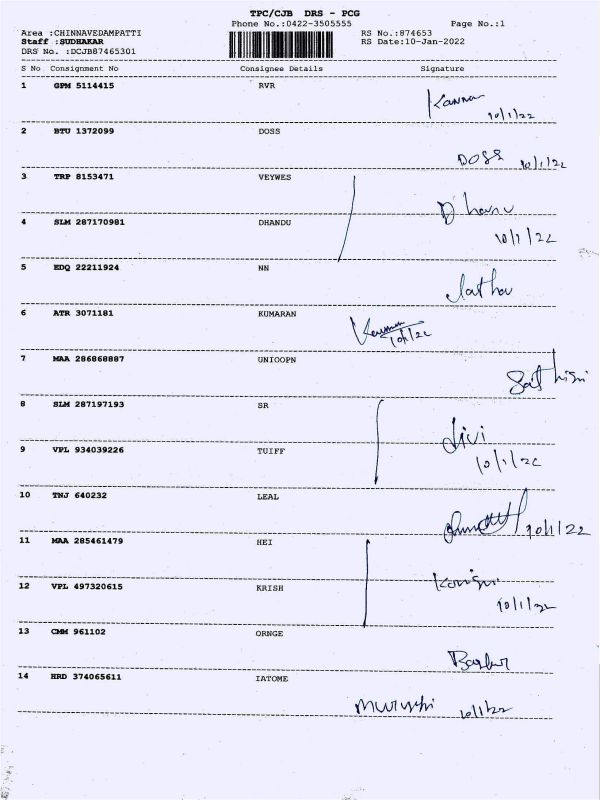 TPC/CJB DRS - PCG
Phone No.:0422-3505555 Page No.:1
Area :CHINNAVEDAMPATTI RS No.:874653
Staff :SUDHAKAR RS Date:10-Jan-2022
DRS No. :DCJB87465301
S No Consignment No Consignee Details Signature
1 GPM 5114415 RVR
Kanna 10/1/22
2 BTU 1372099 DOSS
DOSS 10/1/22
3 TRP 8153471 VEYWES
Dhanu
4 SLM 287170981 DHANDU
10/1/22
5 EDQ 22211924 NN
6 ATR 3071181 KUMARAN
10/1/22
7 MAA 286868887 UNIOOPN
8 SLM 287197193 SR
Jivi
9 VPL 934039226 TUIFF
10/1/22
10 TNJ 640232 LEAL
10/1/22
11 MAA 285461479 HEI
12 VPL 497320615 KRISH
10/1/22
13 CMM 961102 ORNGE
14 HRD 374065611 IATOME
10/1/22